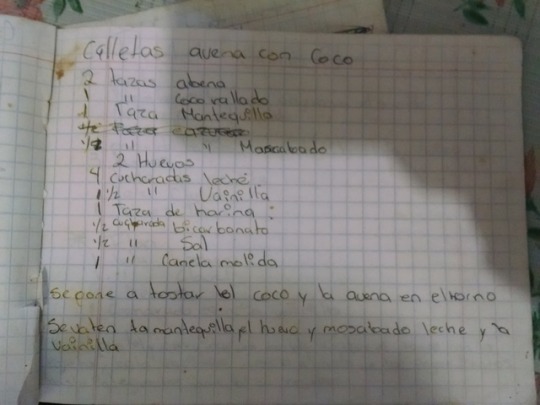 Galletas avena con Coco
2 tazas abena
1 " Coco rallado
1 Taza Mantequilla
1/2 Tazas azucar
1/2 " " Mascabado
2 Huevos
4 cucharadas leche
1 1/2 " Vainilla
1 Taza de harina :
1/2 cucharada bicarbonato
1/2 " Sal
1 " Canela molida
se pone a tostar el coco y la avena en el horno
Se vaten la mantequilla, el huevo y moscabado leche y la
Vainilla